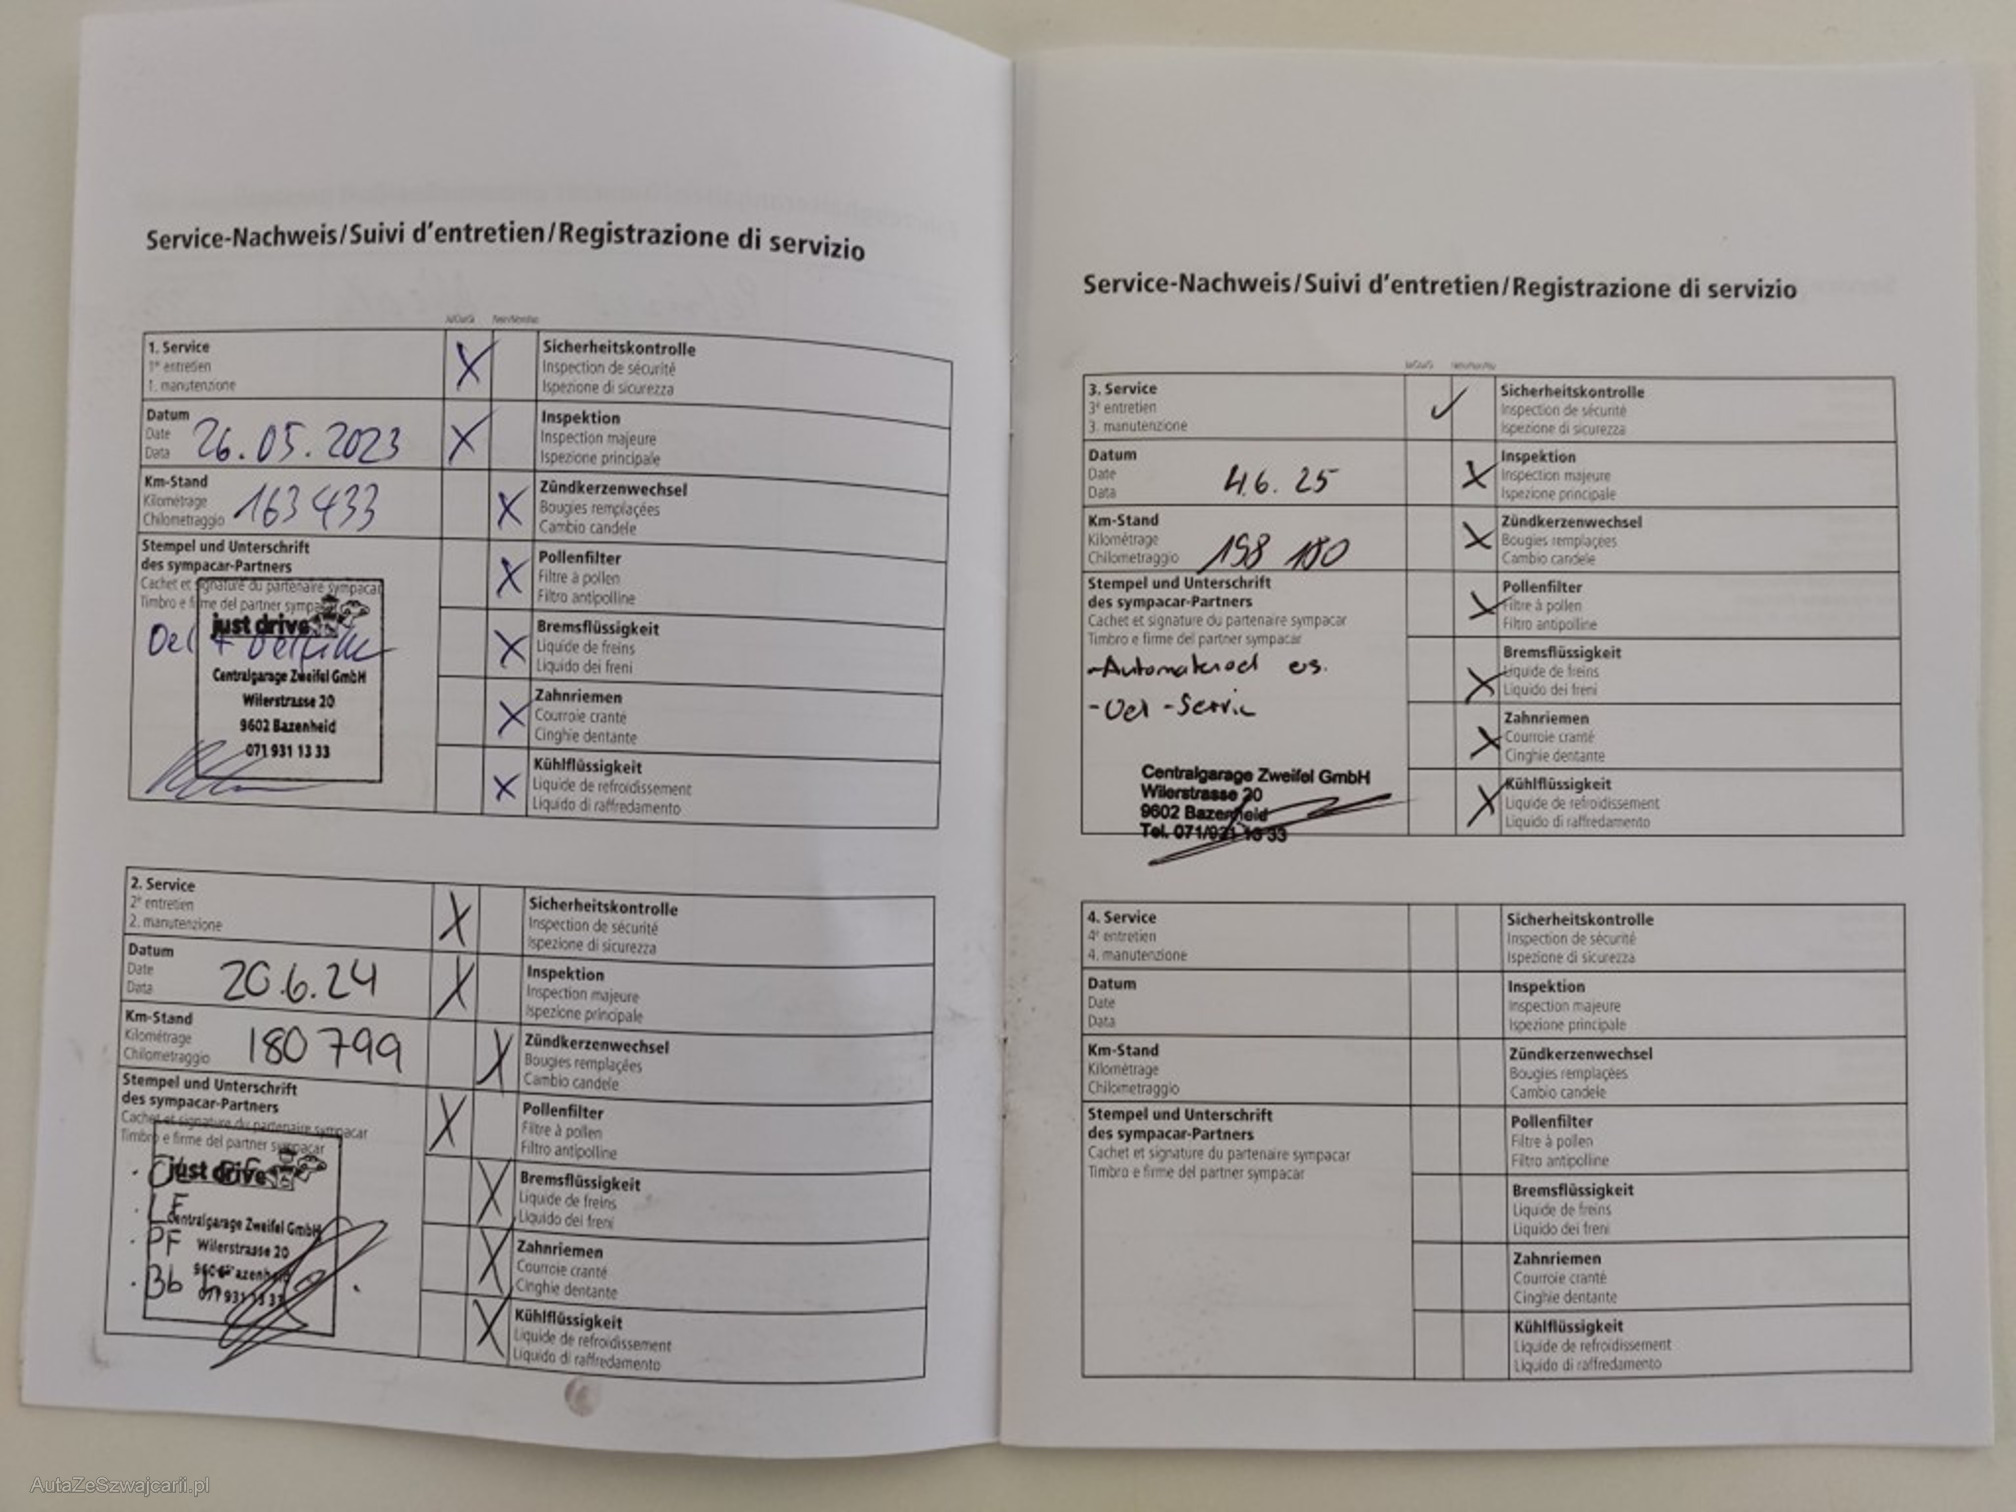 Service-Nachweis/Suivi d'entretien/Registrazione di servizio
1. Service
1e entretien
1. manutenzione
Sicherheitskontrolle
Inspection de sécurité
Ispezione di sicurezza
Datum
Date
Data
26.05.2023
Inspektion
Inspection majeure
Ispezione principale
Km-Stand
Kilométrage
Chilometraggio
163 433
Zündkerzenwechsel
Bougies remplaçées
Cambio candele
Stempel und Unterschrift
des sympacar-Partners
Cachet et signature du partenaire sympacar
Timbro e firme del partner sympacar
Oel +
just drive
Centralgarage Zweifel GmbH
Wilerstrasse 20
9602 Bazenheid
071 931 13 33
Pollenfilter
Filtre à pollen
Filtro antipolline
Bremsflüssigkeit
Liquide de freins
Liquido dei freni
Zahnriemen
Courroie cranté
Cinghie dentante
Kühlflüssigkeit
Liquide de refroidissement
Liquido di raffredamento
2. Service
2e entretien
2. manutenzione
Sicherheitskontrolle
Inspection de sécurité
Ispezione di sicurezza
Datum
Date
Data
20.6.24
Inspektion
Inspection majeure
Ispezione principale
Km-Stand
Kilométrage
Chilometraggio
180 799
Zündkerzenwechsel
Bougies remplaçées
Cambio candele
Stempel und Unterschrift
des sympacar-Partners
Cachet et signature du partenaire sympacar
Timbro e firme del partner sympacar
just drive
LF
Centralgarage Zweifel GmbH
PF
Wilerstrasse 20
Bb
071 931 13 33
Pollenfilter
Filtre à pollen
Filtro antipolline
Bremsflüssigkeit
Liquide de freins
Liquido dei freni
Zahnriemen
Courroie cranté
Cinghie dentante
Kühlflüssigkeit
Liquide de refroidissement
Liquido di raffredamento
Service-Nachweis/Suivi d'entretien/Registrazione di servizio
3. Service
3e entretien
3. manutenzione
Sicherheitskontrolle
Inspection de sécurité
Ispezione di sicurezza
Datum
Date
Data
4.6. 25
Inspektion
Inspection majeure
Ispezione principale
Km-Stand
Kilométrage
Chilometraggio
198 180
Zündkerzenwechsel
Bougies remplaçées
Cambio candele
Stempel und Unterschrift
des sympacar-Partners
Cachet et signature du partenaire sympacar
Timbro e firme del partner sympacar
- Oel - Servic
Centralgarage Zweifel GmbH
Wilerstrasse 20
9602 Bazenheid
Pollenfilter
Filtre à pollen
Filtro antipolline
Bremsflüssigkeit
Liquide de freins
Liquido dei freni
Zahnriemen
Courroie cranté
Cinghie dentante
Kühlflüssigkeit
Liquide de refroidissement
Liquido di raffredamento
4. Service
4e entretien
4. manutenzione
Sicherheitskontrolle
Inspection de sécurité
Ispezione di sicurezza
Datum
Date
Data
Inspektion
Inspection majeure
Ispezione principale
Km-Stand
Kilométrage
Chilometraggio
Zündkerzenwechsel
Bougies remplaçées
Cambio candele
Stempel und Unterschrift
des sympacar-Partners
Cachet et signature du partenaire sympacar
Timbro e firme del partner sympacar
Pollenfilter
Filtre à pollen
Filtro antipolline
Bremsflüssigkeit
Liquide de freins
Liquido dei freni
Zahnriemen
Courroie cranté
Cinghie dentante
Kühlflüssigkeit
Liquide de refroidissement
Liquido di raffredamento
AutaZeSzwajcarii.pl